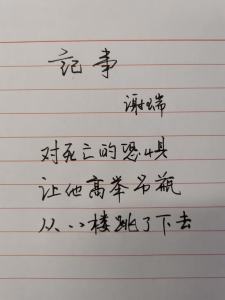 记事
谢瑞
对死亡的恐惧
让他高举吊瓶
从八楼跳了下去